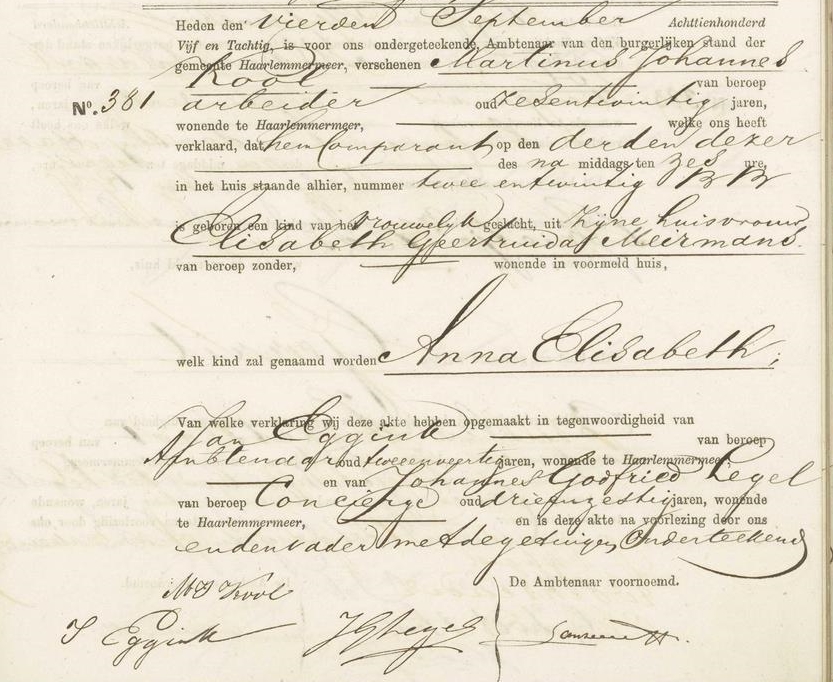 Heden den Vierden September Achttienhonderd
Vijf en Tachtig, is voor ons ondergeteekende, Ambtenaar van den burgerlijken stand der
gemeente Haarlemmermeer, verschenen Martinus Johannes
Kool van beroep
No. 381 arbeider oud zesentwintig jaren,
wonende te Haarlemmermeer, welke ons heeft
verklaard, dat hem Comparant op den derden dezer
des na middags ten zes ure,
in het huis staande alhier, nummer twee entwintig
is geboren een kind van het Vrouwelyk geslacht, uit Zijne huisvrouw
Elisabeth Geertruida Meirmans.
van beroep zonder, wonende in voormeld huis,
welk kind zal genaamd worden Anna Elisabeth.
Van welke verklaring wij deze akte hebben opgemaakt in tegenwoordigheid van
Jan Eggink van beroep
Ambtenaar oud tweeenveertig jaren, wonende te Haarlemmermeer
en van Johannes Godfried Legel
van beroep Concierge oud drieenzestig jaren, wonende
te Haarlemmermeer, en is deze akte na voorlezing door ons
en den vader met de getuigen Onderteekend
De Ambtenaar voornoemd.
MJ Kool
J Eggink JGLegel